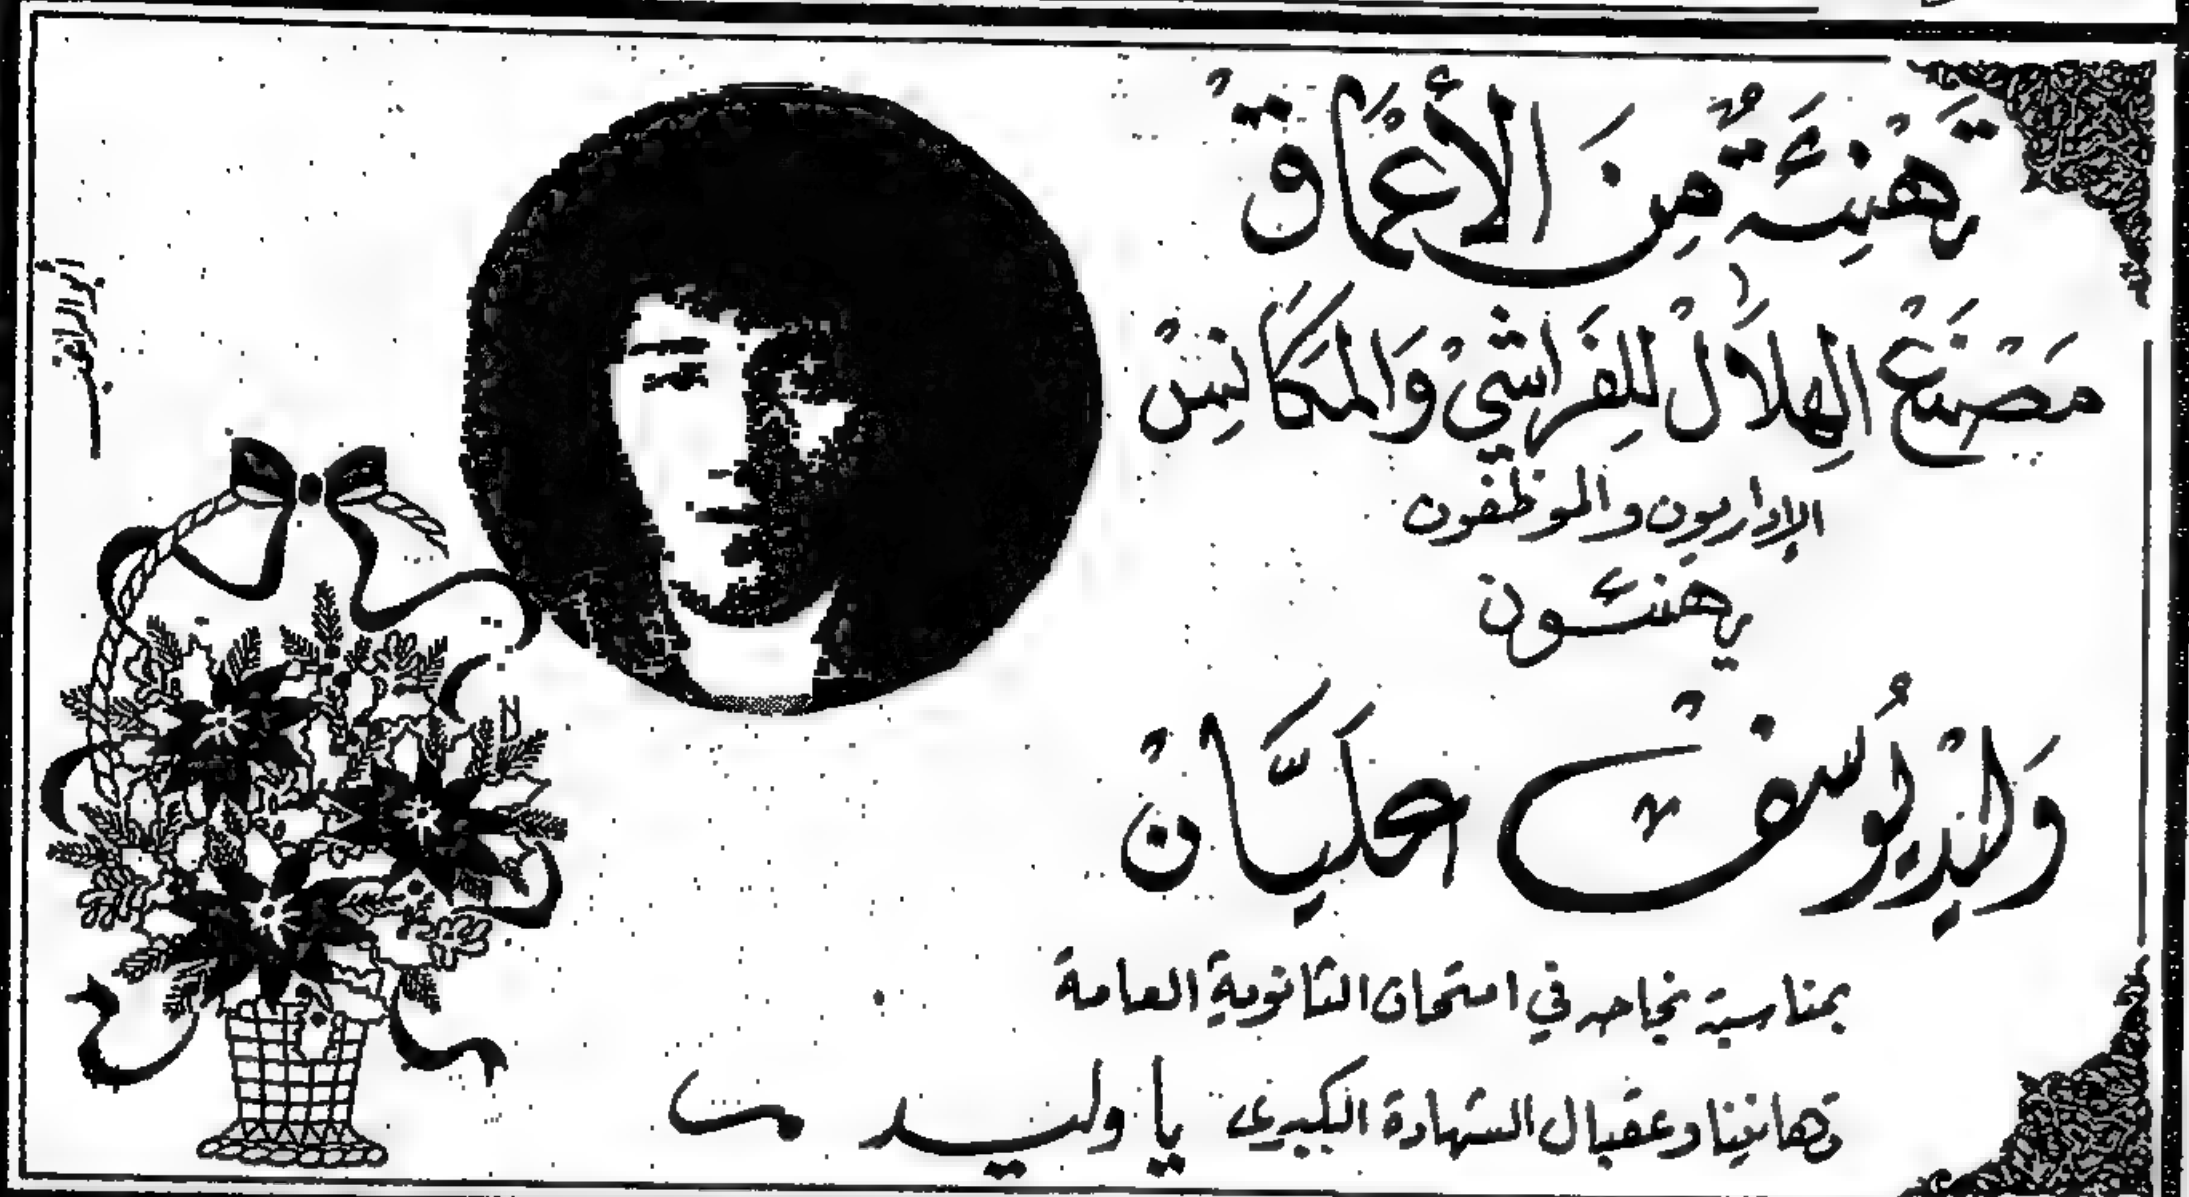 تَهْنِئَةٌ مِنَ الأَعْمَاقْ
مَصْنَعْ الهِلاَلْ لِلفَرَاشِيْ وَالمَكَانِسْ
الإداريون والموظفون
يهنئون
وَليْد يُوسفْ
بمناسبة نجاحه في امتحان الثانوية العامة
تهانينا وعقبال الشهادة الكبرى يا وليد